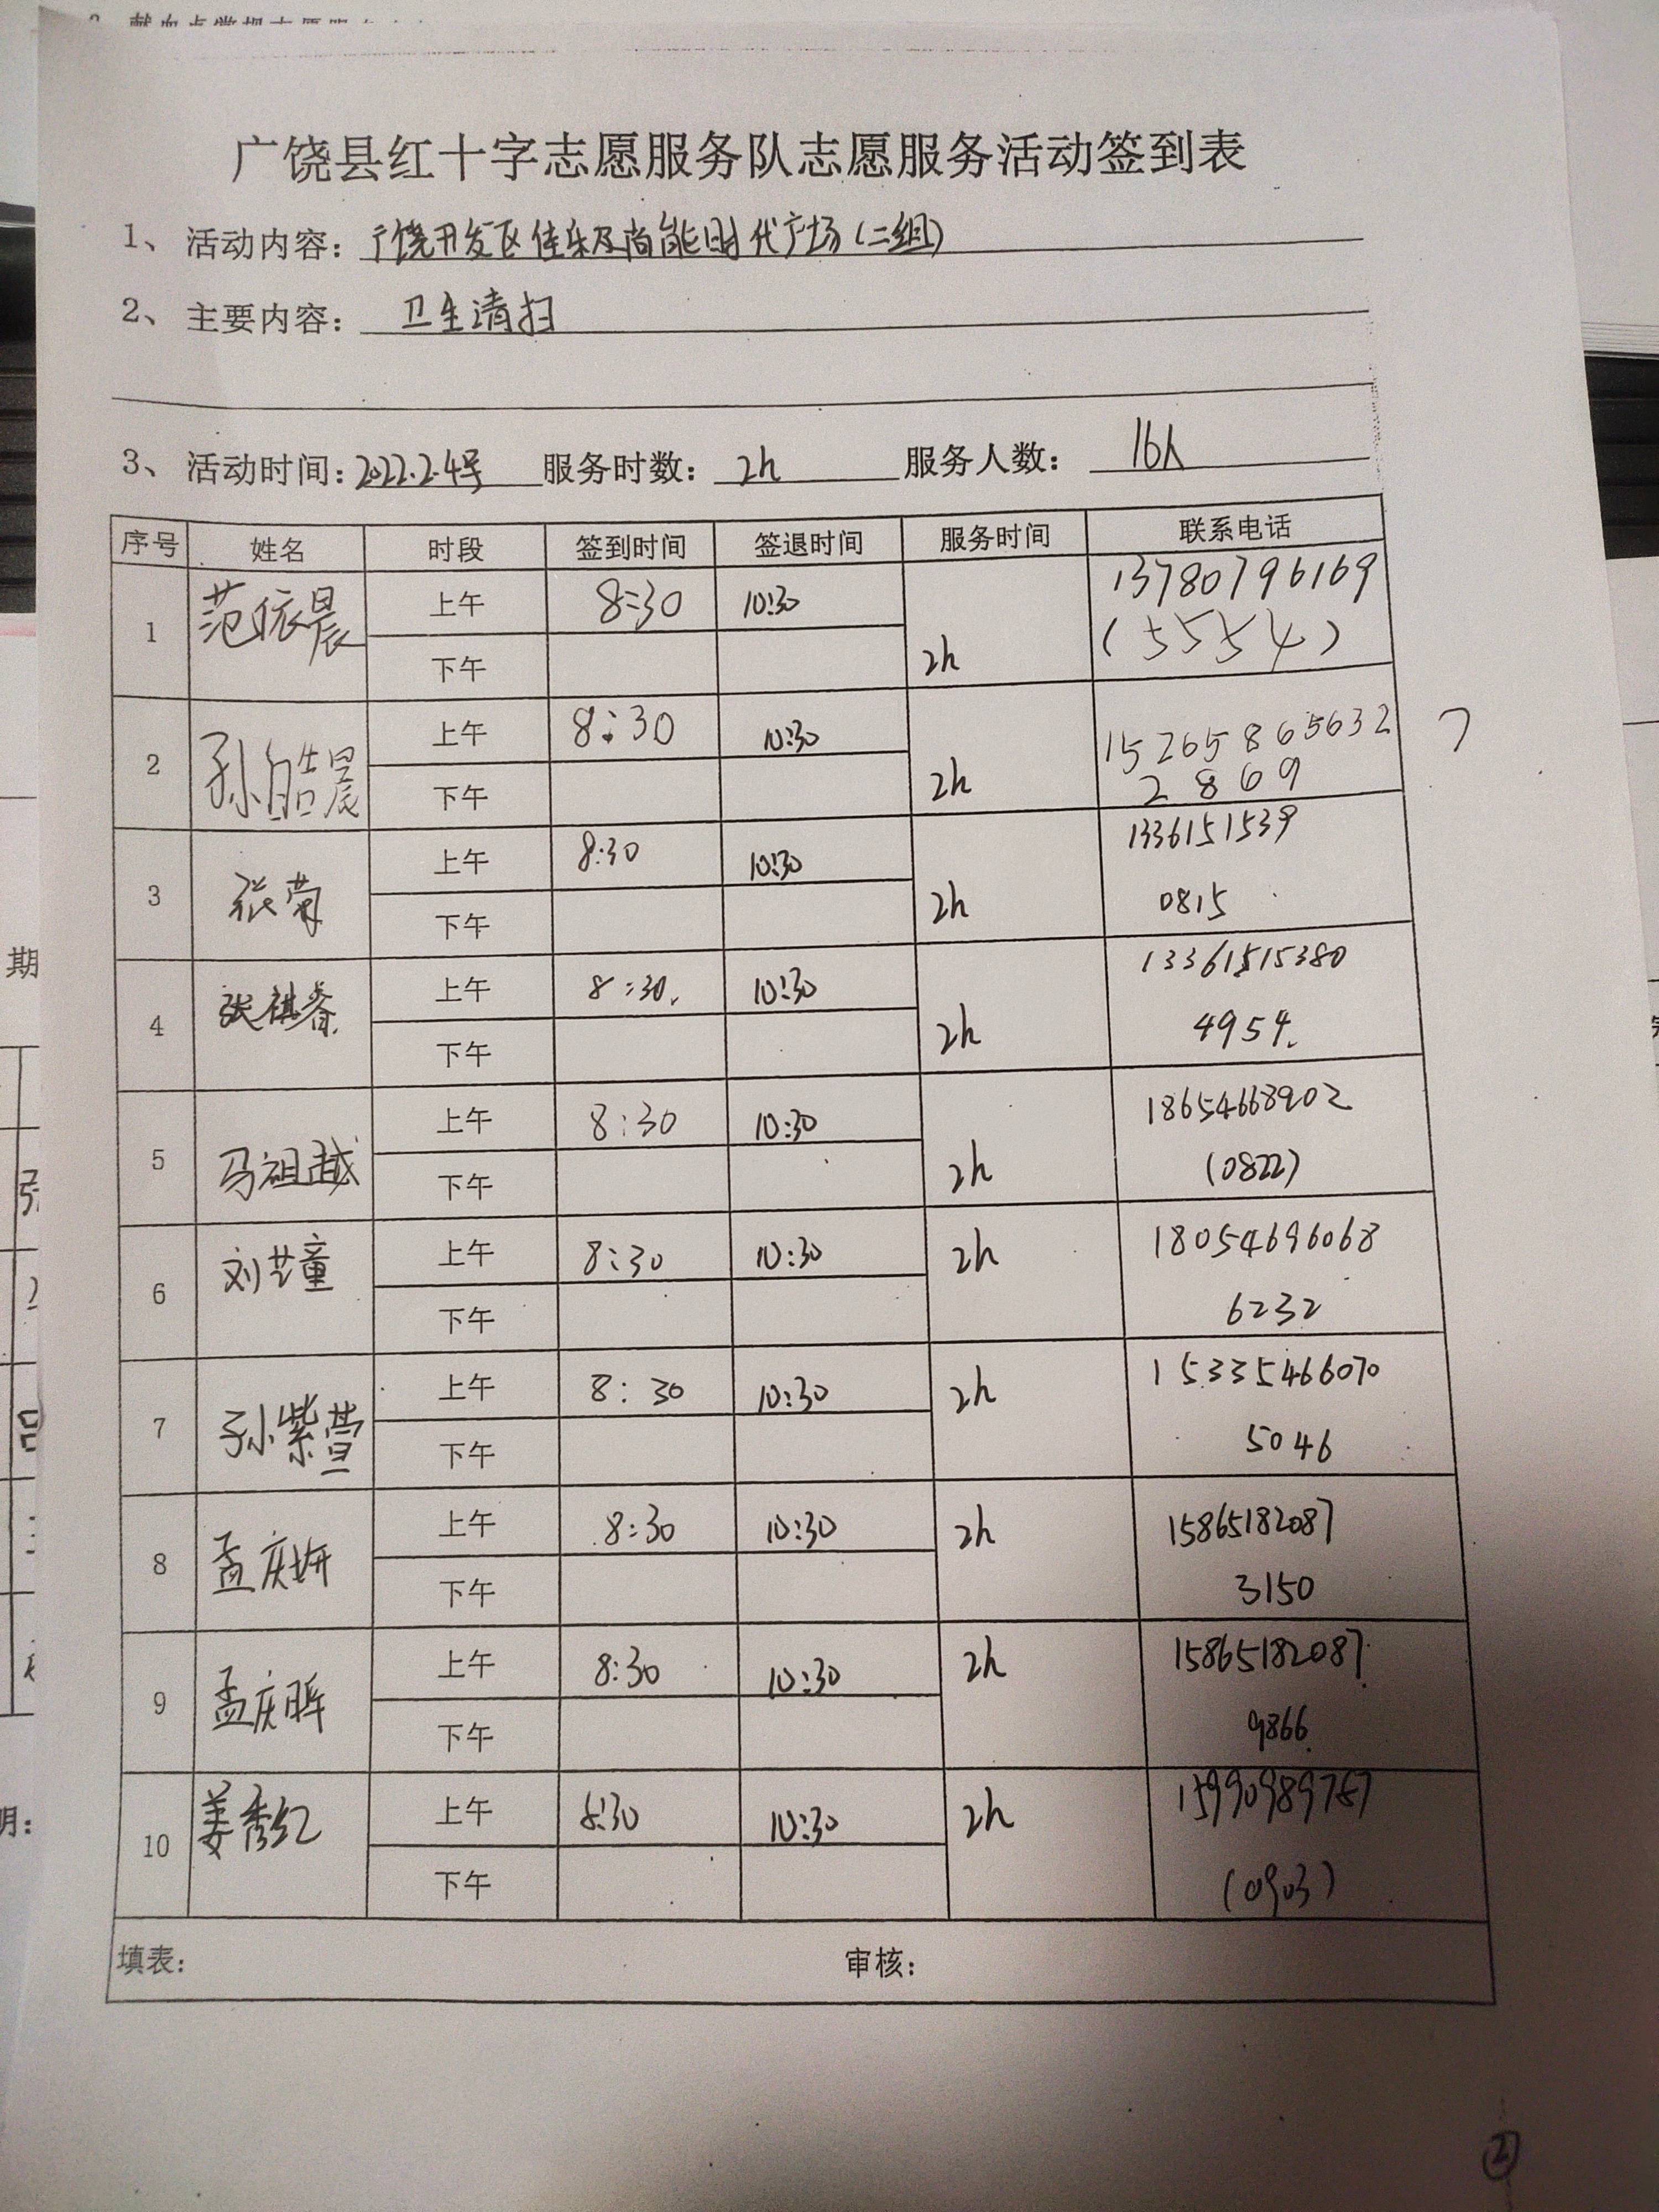 广饶县红十字志愿服务队志愿服务活动签到表
1、活动内容：广饶开发区佳乐及尚能时代广场（二组）
2、主要内容：卫生清扫
3、活动时间：2022.2.4号 服务时数：2h 服务人数：16人
序号 姓名 时段 签到时间 签退时间 服务时间 联系电话
1 范依晨 上午 8:30 10:30 2h 13780796169
下午 (5554)
2 孙皓晨 上午 8:30 10:30 2h 15265865632
下午 2869
3 张菊 上午 8:30 10:30 2h 1336151539
下午 0815
4 张祺睿 上午 8:30. 10:30 2h 13361515380
下午 4954.
5 马祖越 上午 8:30 10:30 2h 18654668902
下午 (0822)
6 刘芷童 上午 8:30 10:30 2h 18054696068
下午 6232
7 孙紫萱 上午 8:30 10:30 2h 15335466070
下午 5046
8 孟庆妍 上午 8:30 10:30 2h 15865182087
下午 3150
9 孟庆晖 上午 8:30 10:30 2h 15865182087
下午 9866
10 姜秀红 上午 8:30 10:30 2h 15990989767
下午 (0903)
填表： 审核：
②